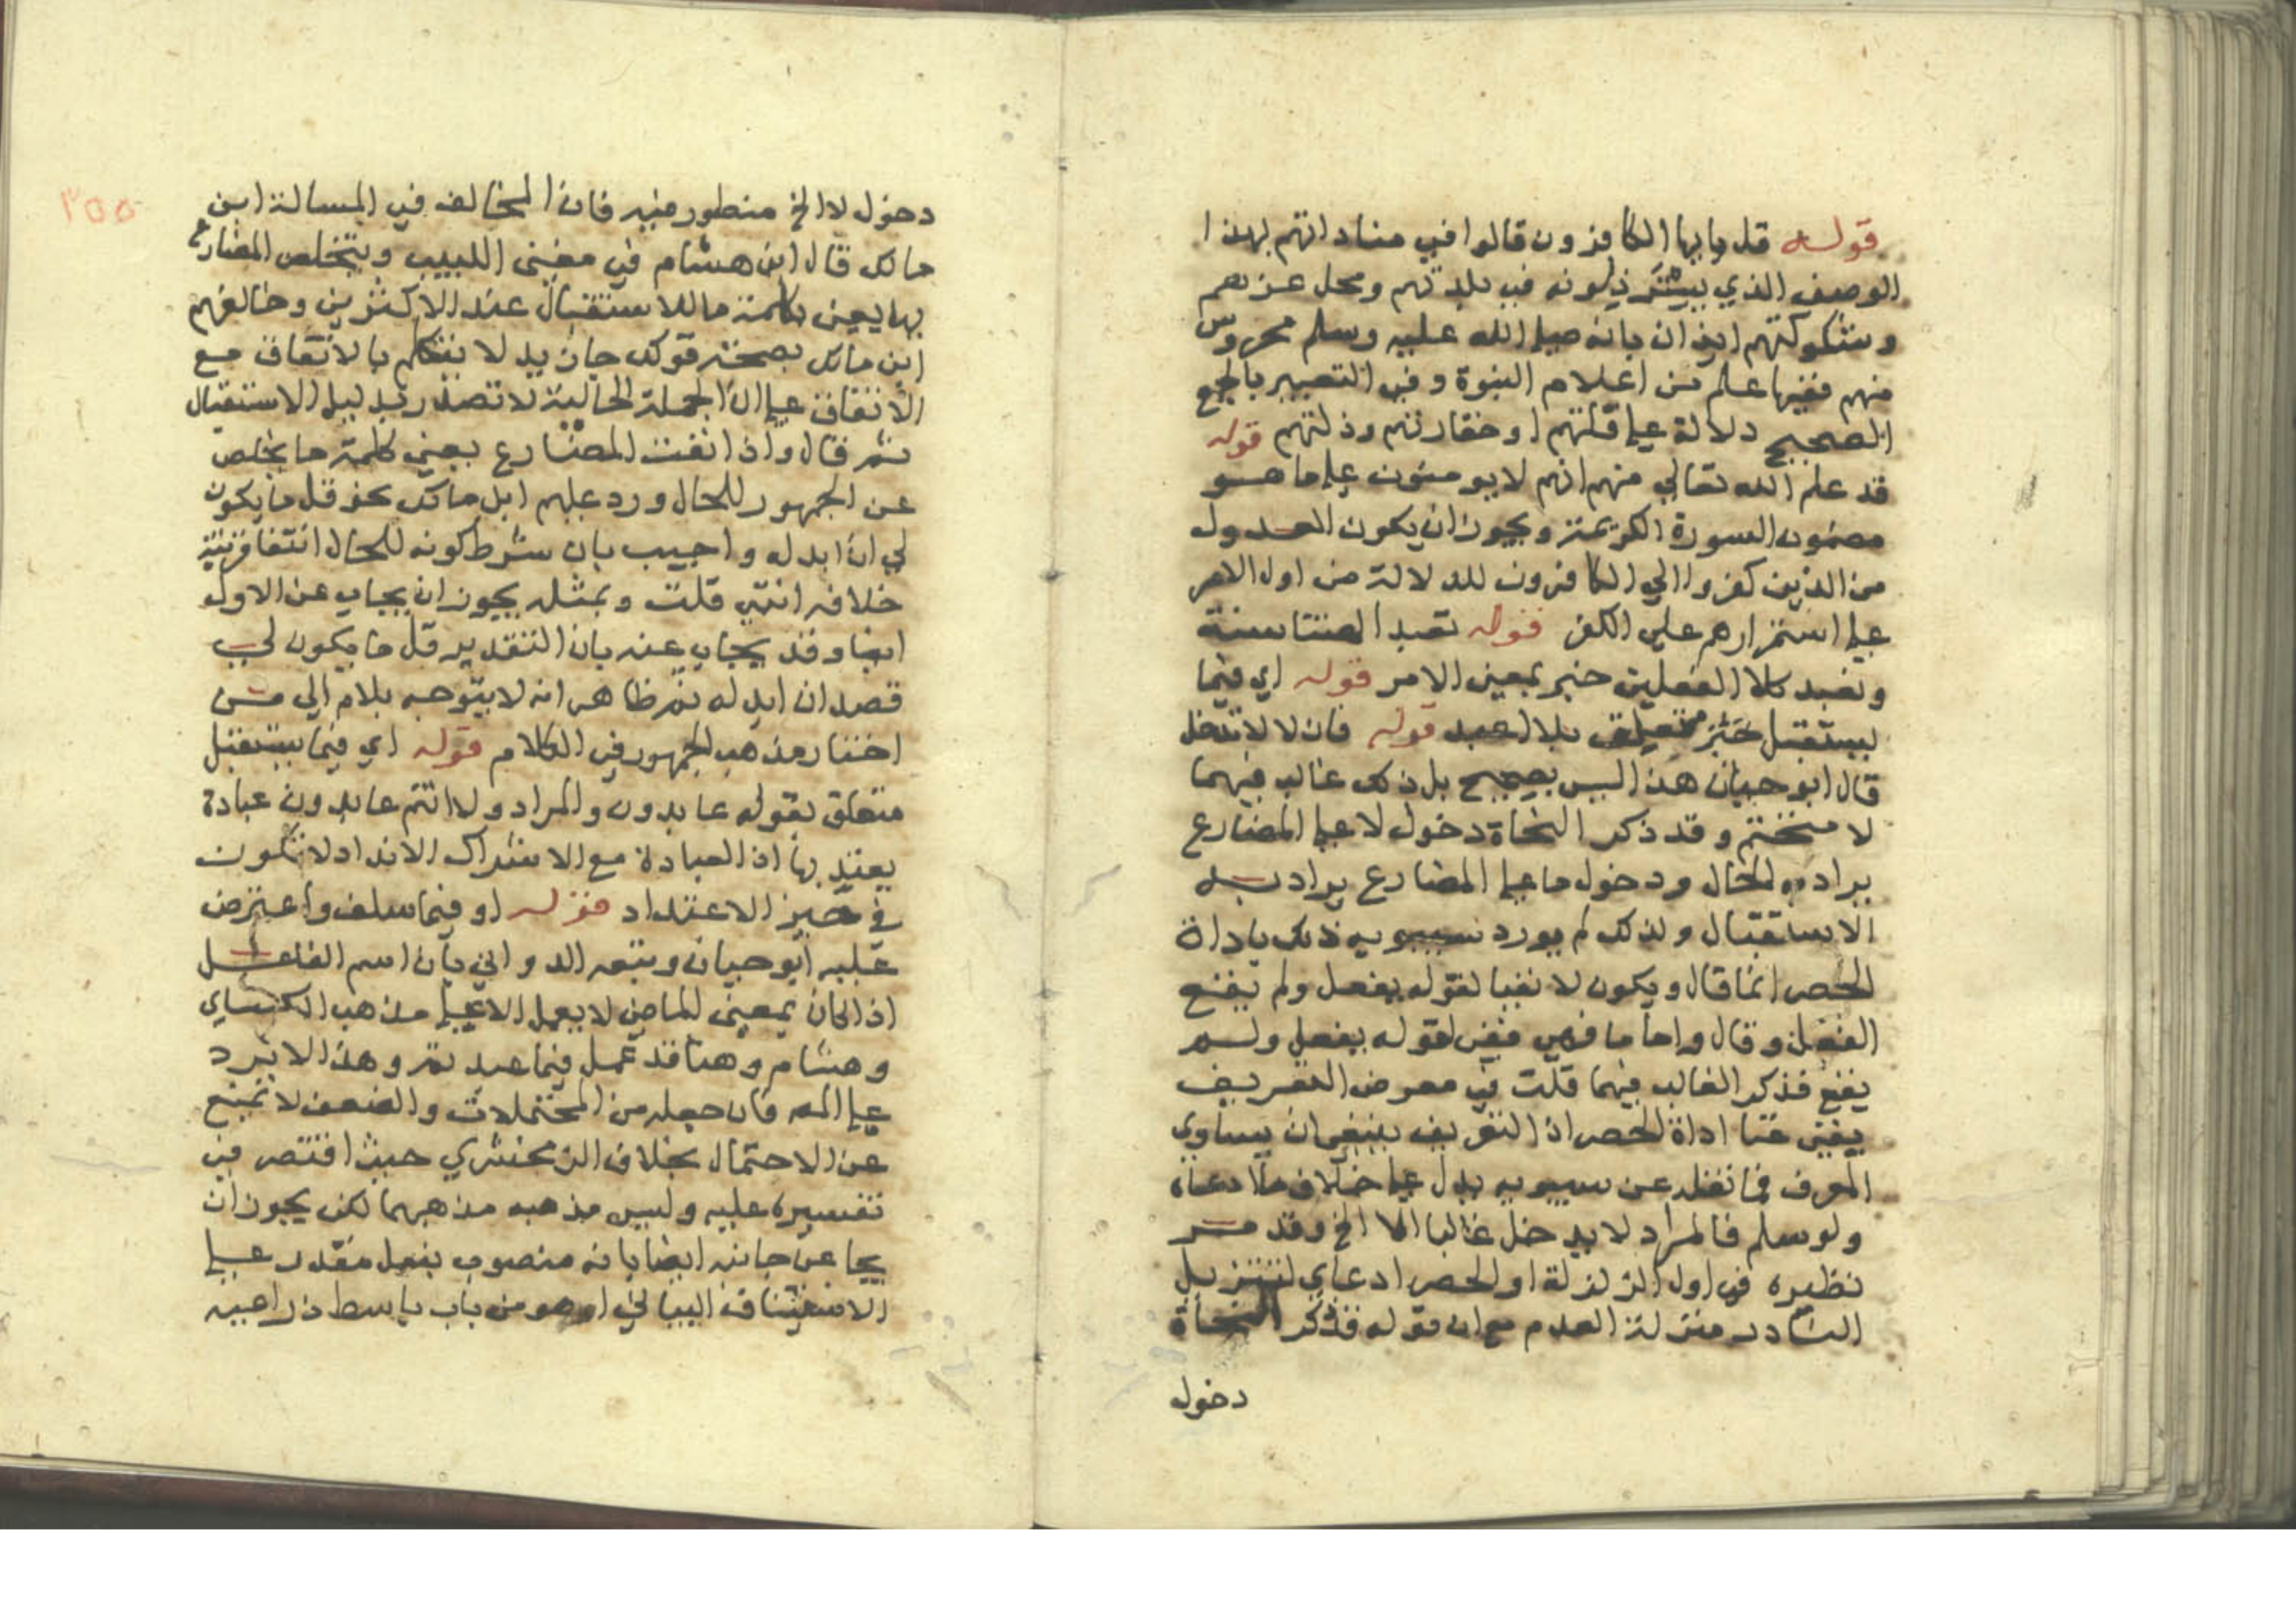 قوله قل يا ايها الكافرون قالوا في مناداتهم بهذا
الوصف الذي يسترذلونه في بلدتهم ومحل عزهم
وشكوكتهم ايذان بانه صلى الله عليه وسلم محروس
منهم ففيها علم من اعلام النبوة وفي التعبير بالجمع
الصحيح دلالة على قلتهم او حقارتهم وذلتهم قوله
قد علم الله تعالى منهم انهم لا يومنون على ما هو
مضمون السورة الكريمة ويجوز ان يكون العدول
من الذين كفروا الى الكافرون للدلالة من اول الامر
على استمرارهم على الكفر قوله تعبد الهتنا سنة
ونعبد كلا الفعلين خبر بمعنى الامر قوله اي فيما
يستقبل حيز متعلق بلا اعبد قوله فان لا لا تدخل
قال ابو حيان هذا ليس بصحيح بل ذلك غالب فيهما
لا متحتم وقد ذكر النحاة دخول لا على المضارع
يراد به الحال ودخول ما على المضارع يراد به
الاستقبال ولذلك لم يورد سيبويه ذلك باداة
الحصر انما قال ويكون لا نفيا لقوله يفعل ولم يقع
الفعل وقال واما ما فهي نفي لقوله يفعل ولم
يقع فذكر الغالب فيهما قلت في معرض التعريف
يغني عنا اداة الحصر اذ التعريف ينبغي ان يساوي
المعرف فما نقله عن سيبويه يدل على خلاف ما ادعاه
ولو سلم فالمراد لا يدخل غالبا الا الخ وقد مر
نظيره في اول الزلزلة او الحصر ادعاي لتنزيل
النادر منزلة العدم مع ان قوله فذكر النحاة
دخول
٣٥٥
دخول لا الخ منظور فيه فان المخالف في المسالة ابن
مالك قال ابن هشام في مغني اللبيب ويتخلص المضارع
بها يعني بكلمة ما للاستقبال عند الاكثرين وخالفهم
ابن مالك بصحة قولك جا زيد لا يتكلم بالاتفاق مع
الاتفاق على ان الجملة الحالية لا تصدر بدليل الاستقبال
ثم قال واذا نفت المضارع يعني كلمة ما يخلص
عن الجمهور للحال ورد عليهم ابن مالك نحو قل ما يكون
لي ان ابدله واجيب بان شرط كونه للحال انتفا قرينة
خلافه انتهى قلت وبمثله يجوز ان يجاب عن الاول
ايضا وقد يجاب عنه بان التقدير قل ما يكون لي
قصد ان ابدله ثم ظاهر انه لا يتوجه بلام الى من
اختار مذهب الجمهور في الكلام قوله اي فيما يستقبل
متعلق بقوله عابدون والمراد ولا انتم عابدون عبادة
يعتد بها اذ العبادة مع الاشراك الانداد لا تكون
في حيز الاعتداد قوله او فيما سلف واعترض
عليه ابو حيان وتبعه الدواني بان اسم الفاعل
اذا كان بمعنى الماضي لا يعمل الا على مذهب الكساي
وهشام وهنا قد عمل فيما عبدتم وهذا لا يرد
على المص فان جعله من المحتملات والضعف لا تمنع
عن الاحتمال بخلاف الزمخشري حيث اقتصر في
تفسيره عليه وليس مذهبه مذهبهما لكن يجوز ان
يجا عن جانبه ايضا بانه منصوب بفعل مقدر على
الاستيناف البياني او هو من باب باسط ذراعيه